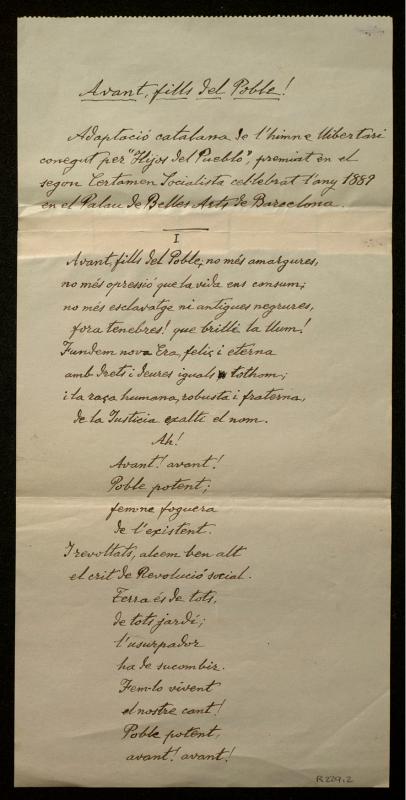 Avant, fills del Poble!
Adaptació catalana de l'himne llibertari
conegut per "Hijos del Pueblo", premiat en el
segon Certamen Socialista cellebrat l'any 1889
en el Palau de Belles Arts de Barcelona.
I
Avant, fills del Poble, no més amargures,
no més opressió que la vida ens consum;
no més esclavatge ni antigues negrures,
fora tenebres! que brilli la llum!
Fundem nova Era, feliç i eterna
amb drets i deures iguals tothom;
i la raça humana, robusta i fraterna,
de la Justicia exalti el nom.
Ah!
Avant! avant!
Poble potent;
fem-ne foguera
de l'existent.
I revoltats, alcem ben alt
el crit de Revolució social.
Terra és de tots,
de tots jardí;
l'usurpador
ha de sucombir.
Fem-lo vivent
el nostre cant!
Poble potent,
avant! avant!
R 229.2